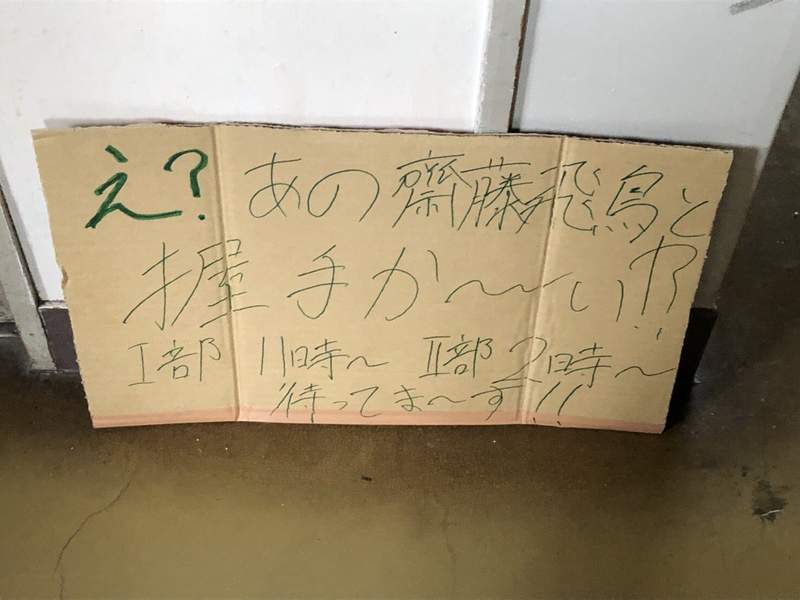 え?あの齋藤飛鳥と
握手か〜い!?
I部 11時〜 II部 2時〜
待ってま〜す!!